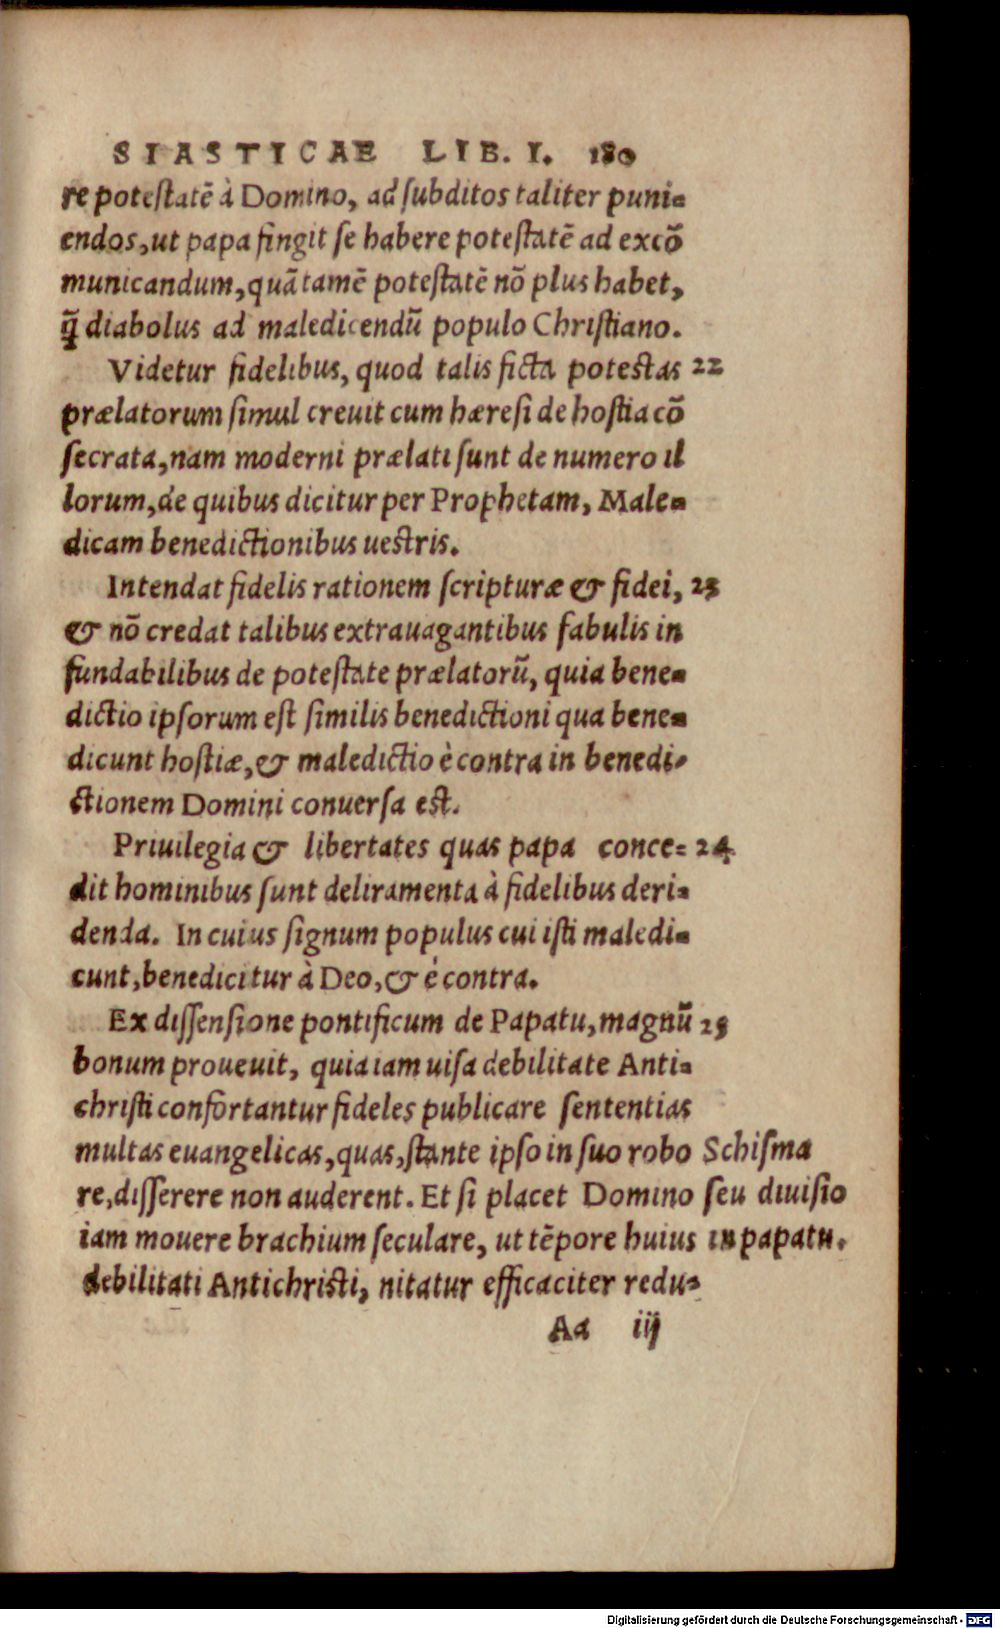 SIASTICAE LIB. I. 180
re potestatē à Domino, ad subditos taliter puni-
endos, ut papa fingit se habere potestatē ad excō
municandum, quā tamē potestatē nō plus habet,
q̄ diabolus ad maledicendū populo Christiano.
Videtur fidelibus, quod talis ficta potestas 22
prælatorum simul creuit cum hæresi de hostia cō
secrata, nam moderni prælati sunt de numero il
lorum, de quibus dicitur per Prophetam, Male-
dicam benedictionibus uestris.
Intendat fidelis rationem scripturæ & fidei, 23
& nō credat talibus extrauagantibus fabulis in
fundabilibus de potestate prælatorū, quia bene-
dictio ipsorum est similis benedictioni qua bene-
dicunt hostiæ, & maledictio è contra in benedi-
ctionem Domini conuersa est.
Priuilegia & libertates quas papa conce- 24
dit hominibus sunt deliramenta à fidelibus deri-
denda. In cuius signum populus cui isti maledi-
cunt, benedicitur à Deo, & è contra.
Ex dissensione pontificum de Papatu, magnū 25
bonum prouenit, quia iam uisa debilitate Anti-
christi confortantur fideles publicare sententias
multas euangelicas, quas, stante ipso in suo robo Schisma
re, disserere non auderent. Et si placet Domino seu diuisio
iam mouere brachium seculare, ut tēpore huius in papatu.
debilitati Antichristi, nitatur efficaciter redu-
Aa iij
Digitalisierung gefördert durch die Deutsche Forschungsgemeinschaft - DFG